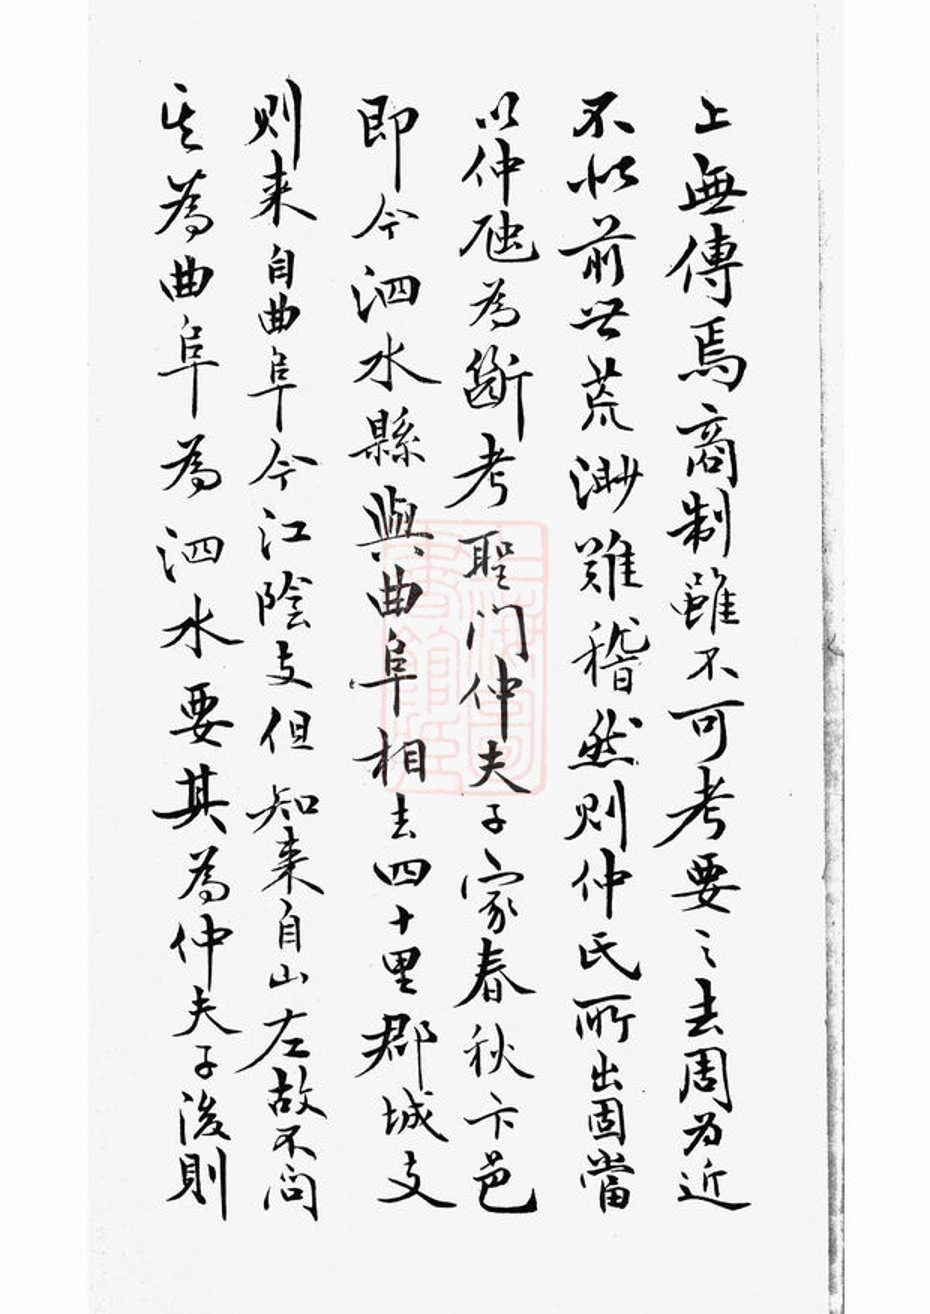 上無傳焉商制雖不可考要之去周為近
不似前世荒渺難稽然則仲氏所出固當
以仲虺為斷考聖門仲夫子家春秋卞邑
即今泗水縣與曲阜相去四十里郡城支
則来自曲阜今江陰支但知来自山左故不问
其為曲阜為泗水要其為仲夫子後則
上海圖書館藏